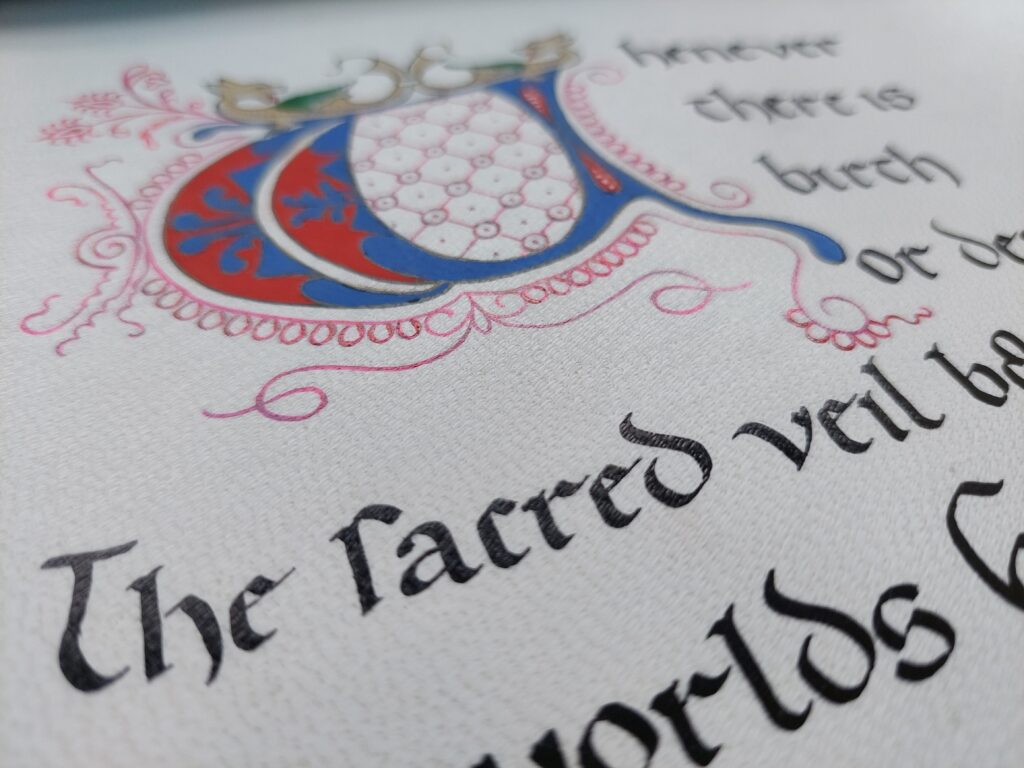 Whenever
there is
birth
or de
The ſacred veil be
worlds